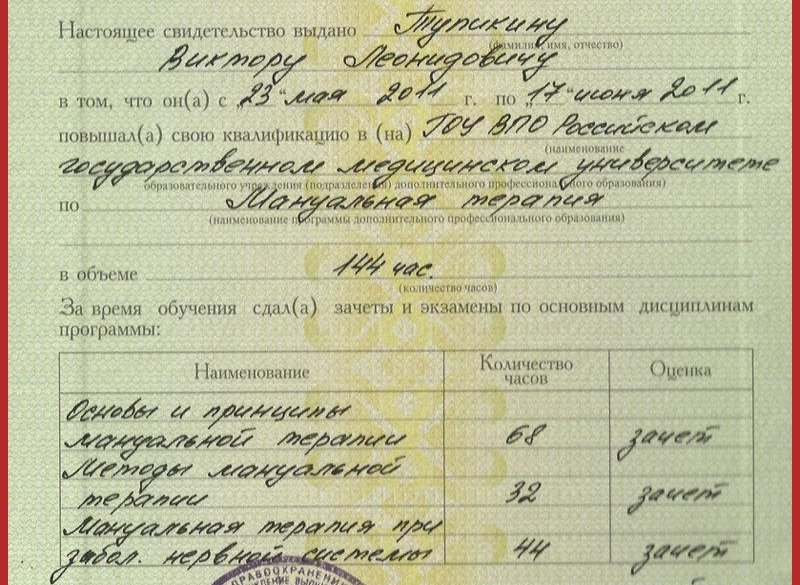 Настоящее свидетельство выдано Тупикину
(фамилия, имя, отчество)
Виктору Леонидовичу
в том, что он(а) с „23“ мая 2011 г. по „17“ июня 2011 г.
повышал(а) свою квалификацию в (на) ГОУ ВПО Российском
(наименование
государственном медицинском университете
образовательного учреждения (подразделения) дополнительного профессионального образования)
по Мануальная терапия
(наименование программы дополнительного профессионального образования)
в объеме 144 час.
(количество часов)
За время обучения сдал(а) зачеты и экзамены по основным дисциплинам
программы:
Наименование Количество часов Оценка
Основы и принципы
мануальной терапии 68 зачет
Методы мануальной
терапии 32 зачет
Мануальная терапия при
забол. нервной системы 44 зачет